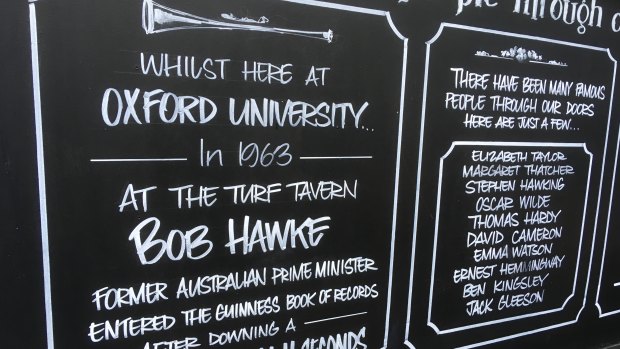 ple through o
WHILST HERE AT
OXFORD UNIVERSITY...
In 1963
AT THE TURF TAVERN
BOB HAWKE
FORMER AUSTRALIAN PRIME MINISTER
ENTERED THE GUINNESS BOOK OF RECORDS
AFTER DOWNING A
SECONDS
THERE HAVE BEEN MANY FAMOUS
PEOPLE THROUGH OUR DOORS
HERE ARE JUST A FEW...
ELIZABETH TAYLOR
MARGARET THATCHER
STEPHEN HAWKING
OSCAR WILDE
THOMAS HARDY
DAVID CAMERON
EMMA WATSON
ERNEST HEMMINGWAY
BEN KINGSLEY
JACK GLEESON